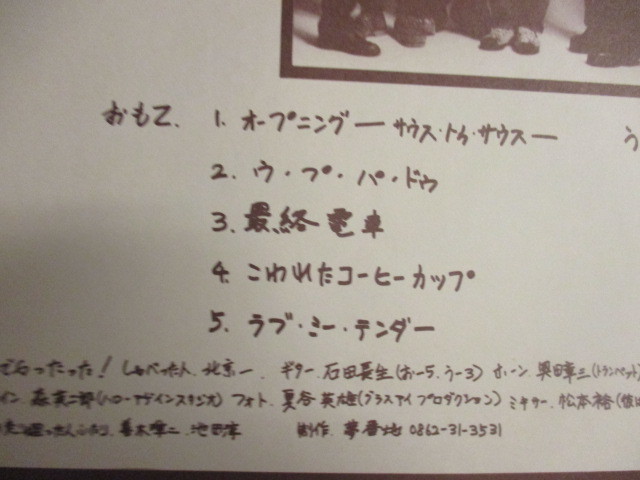 おもて. 1. オープニング ― サウス・トゥ・サウス ― う
2. ウ・プ・パ・ドゥ
3. 最終電車
4. こわれたコーヒーカップ
5. ラブ・ミー・テンダー
ったった! しゃべった人. 北京一. ギター. 石田長生(おー5.うー3) ホーン 奥田章三(トランペット)
イン. 森英二郎(ハローアゲインスタジオ) フォト. 夏谷英雄(プラスアイ プロダクション) ミキサー. 松本裕
池田 制作. 夢番地 0862-31-3531